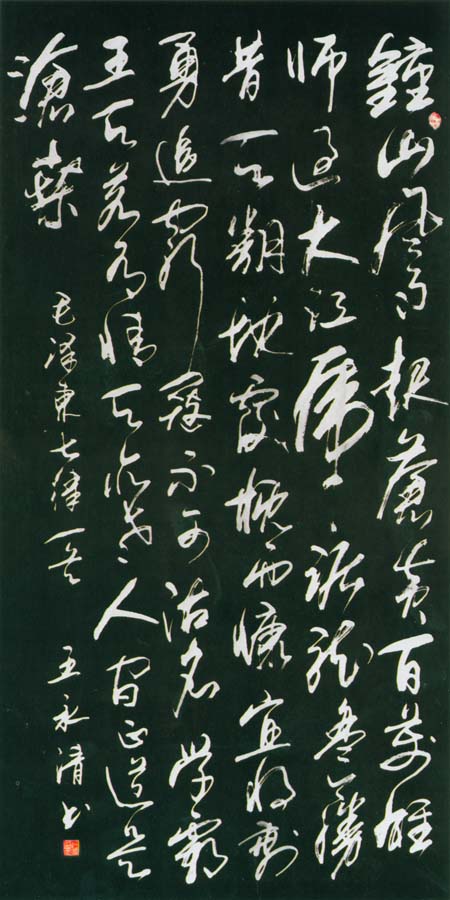 鐘山风雨起蒼黄百萬雄
师过大江虎踞龙盘今勝
昔天翻地覆慨而慷宜将剩
勇追穷寇不可沽名学霸
王天若有情天亦老人间正道是
滄桑
毛泽东七律一首
王永清书